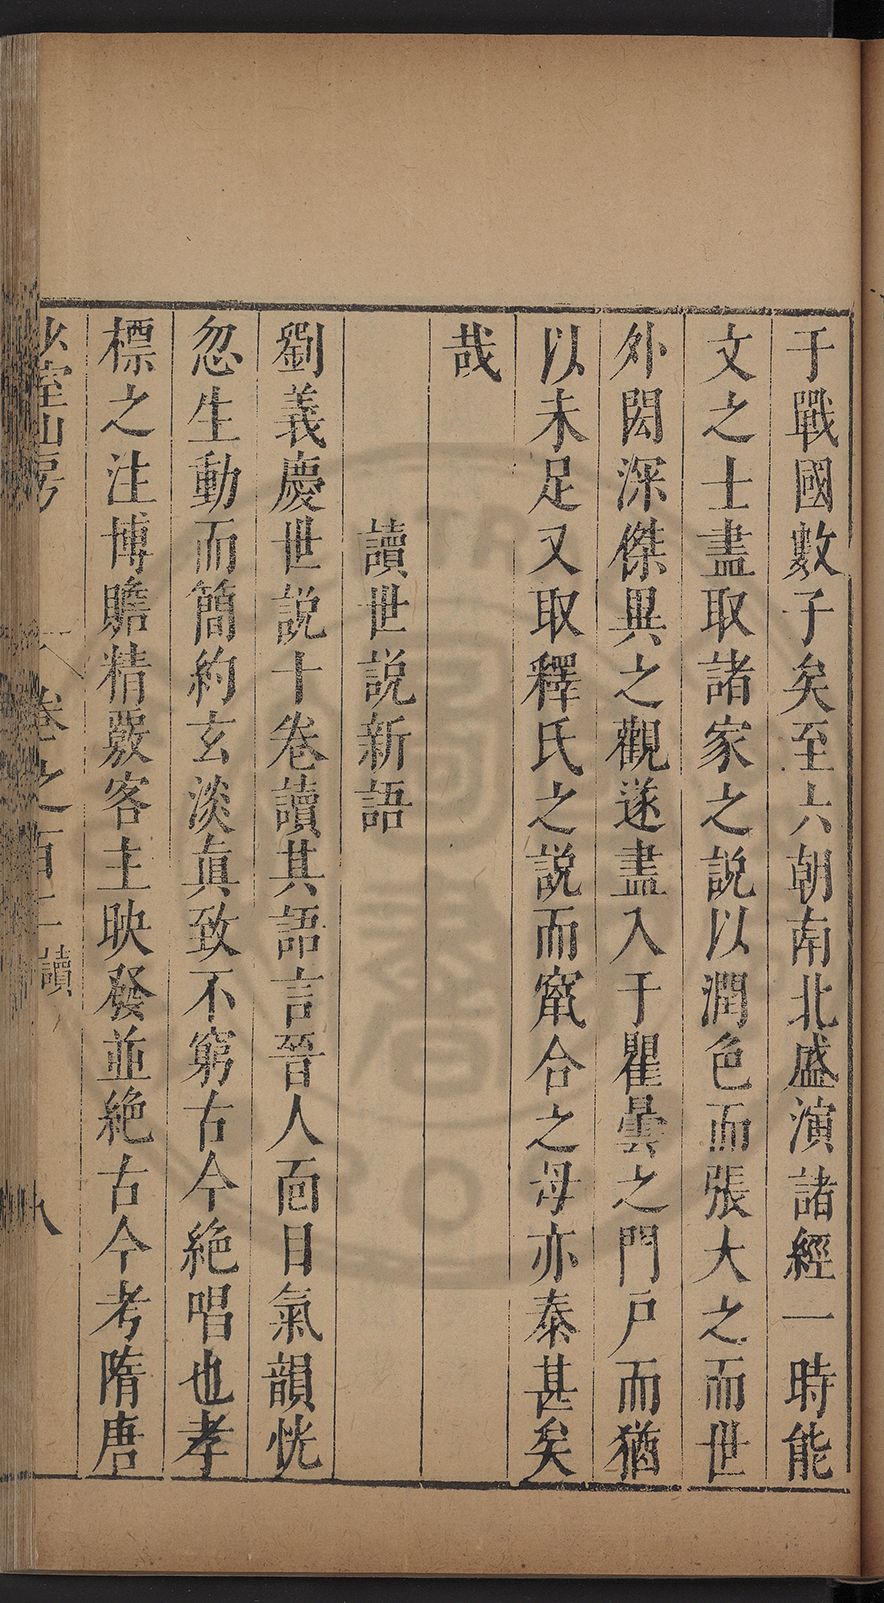 于戰國數子矣至六朝南北盛演諸經一時能
文之士盡取諸家之說以潤色而張大之而世
外閎深傑異之觀遂盡入于瞿曇之門戶而猶
以未足又取釋氏之說而竄合之毋亦泰甚矣
哉
讀世說新語
劉義慶世說十卷讀其語言晉人面目氣韻恍
忽生動而簡約玄淡真致不窮古今絕唱也孝
標之注博贍精覈客主映發並絕古今考隋唐
少室山房
卷之百二 讀
八